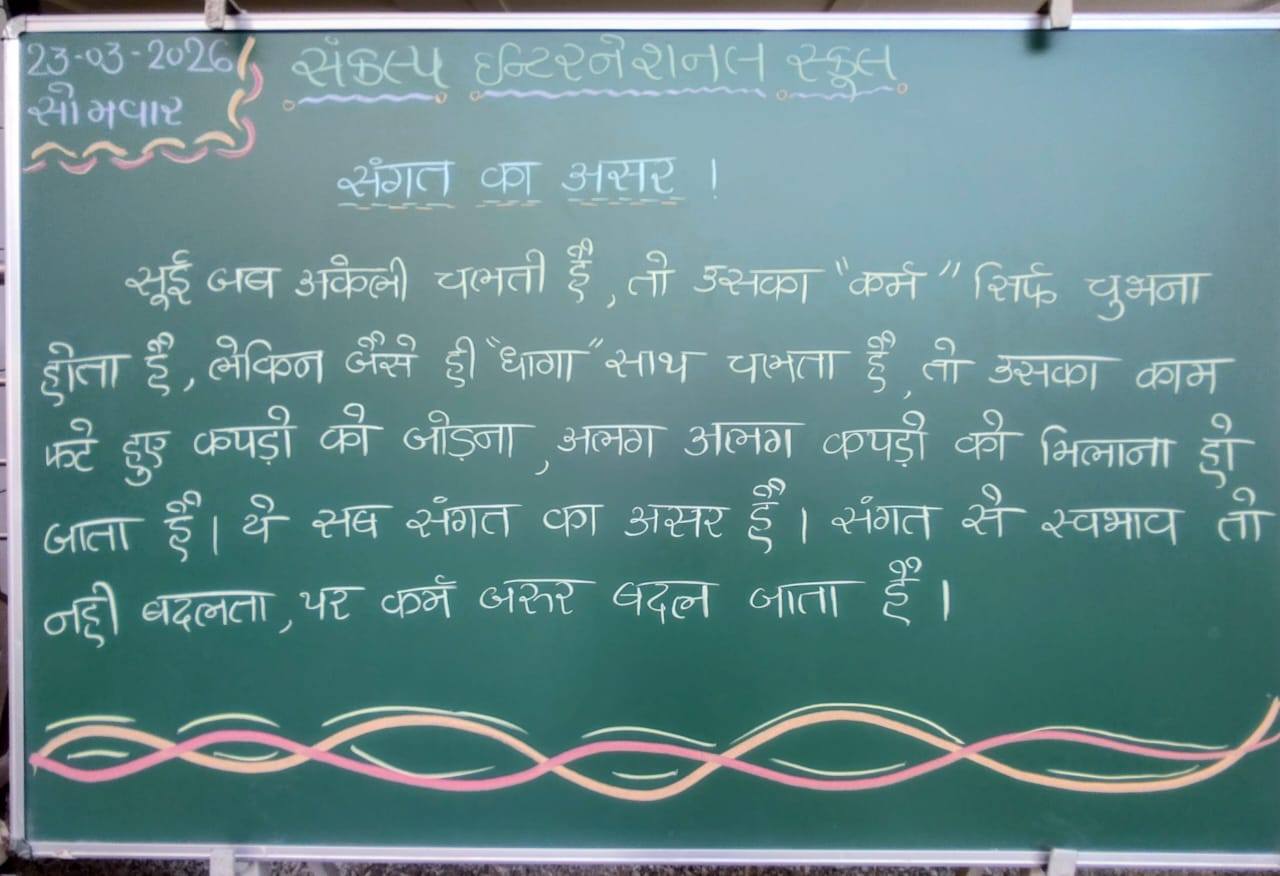 23-03-2026
सोमवार
संकल्प इन्टिरनेशनल स्कुल
संगत का असर !
सूई जब अकेली चलती है, तो उसका "कर्म" सिर्फ चुभना
होता है, लेकिन जैसे ही "धागा" साथ चलता है, तो उसका काम
फटे हुए कपड़ो को जोड़ना, अलग अलग कपड़ो को मिलाना हो
जाता है। ये सब संगत का असर है। संगत से स्वभाव तो
नही बदलता, पर कर्म जरुर बदल जाता है।